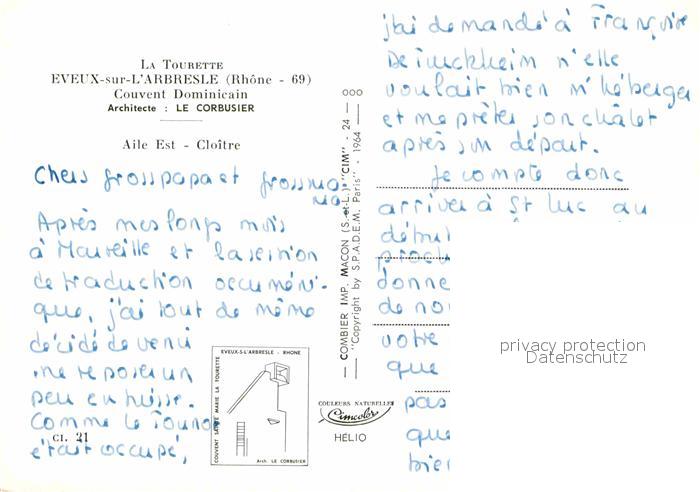 LA TOURETTE
EVEUX-sur-L'ARBRESLE (Rhône - 69)
Couvent Dominicain
Architecte : LE CORBUSIER
Aile Est - Cloître
Chers grosspapa et grossma
ma
Après mes longs mois
à Marseille et la session
de traduction oecuméni-
que, j'ai tout de même
décidé de venir
me reposer un
peu en Suisse.
Comme le
était occupé,
Cl. 21
EVEUX-S-L'ARBRESLE - RHONE
COUVENT SAINTE MARIE LA TOURETTE
Arch. LE CORBUSIER
— COMBIER IMP. MACON (S.-et-L.) "CIM" - 24 — 000
— "Copyright by S.P.A.D.E.M. Paris" - 1964 —
COULEURS NATURELLES
Cimcolor
HÉLIO
j'ai demandé à Françoise
si elle
voulait bien m'héberger
et me prêter son châlet
après son départ.
Je compte donc
arriver à St Luc au
début
procu
donne
de no
votre
que
pas
que
bier
privacy protection
Datenschutz